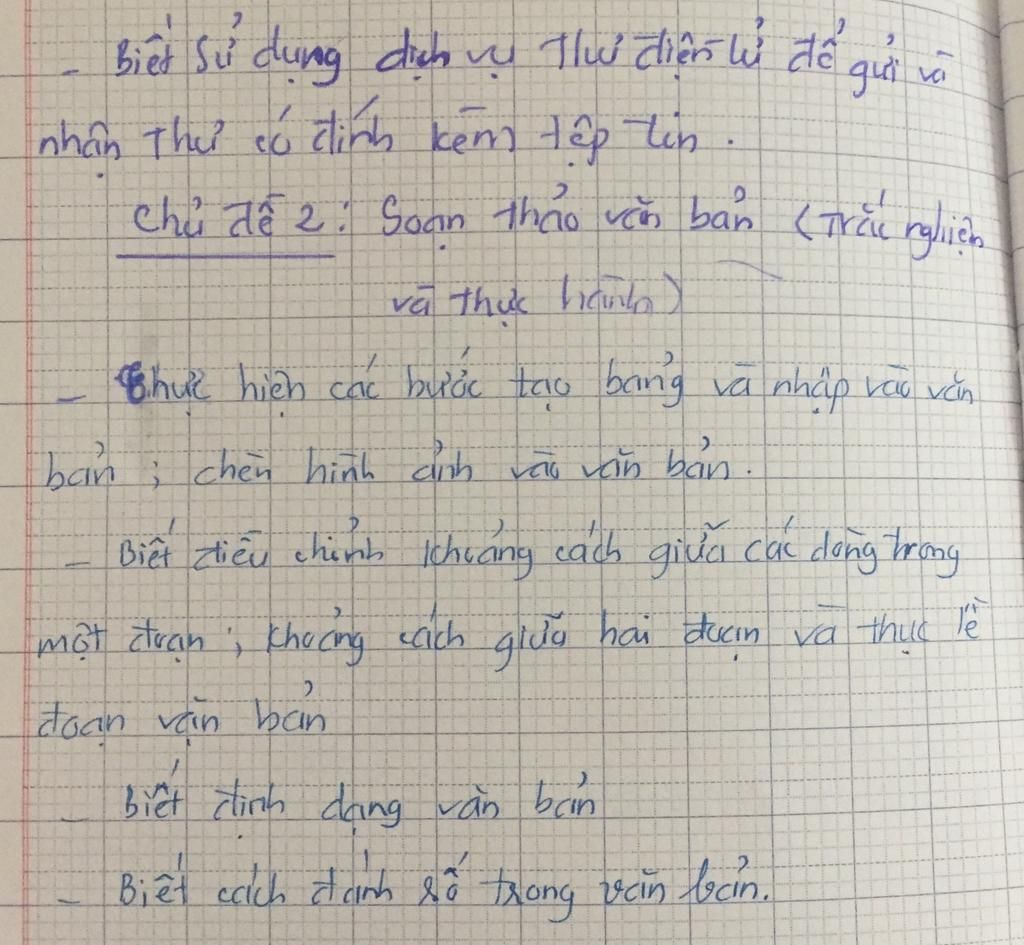 - Biết sử dụng dịch vụ thư điện tử để gửi và
nhận thư có đính kèm tệp tin.
Chủ đề 2: Soạn thảo văn bản (Trắc nghiệm
và thực hành)
- Thực hiện các bước tạo bảng và nhập vào văn
bản; chèn hình ảnh vào văn bản.
- Biết điều chỉnh khoảng cách giữa các dòng trong
một đoạn; khoảng cách giữa hai đoạn và thục lề
đoạn văn bản
- Biết định dạng văn bản
- Biết cách đánh số trong văn bản.